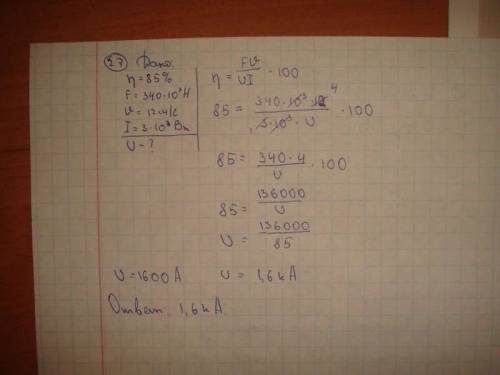 27 Дано:
η = 85%
F = 340·10³ Н
v = 12 м/с
I = 3·10³ Вт
U - ?
η = FV/UI · 100
85 = 340·10³ 12 4/3·10³·U · 100
85 = 340·4/U · 100
85 = 136000/U
U = 136000/85
U = 1600 А U = 1,6 кА
Ответ: 1,6 кА.